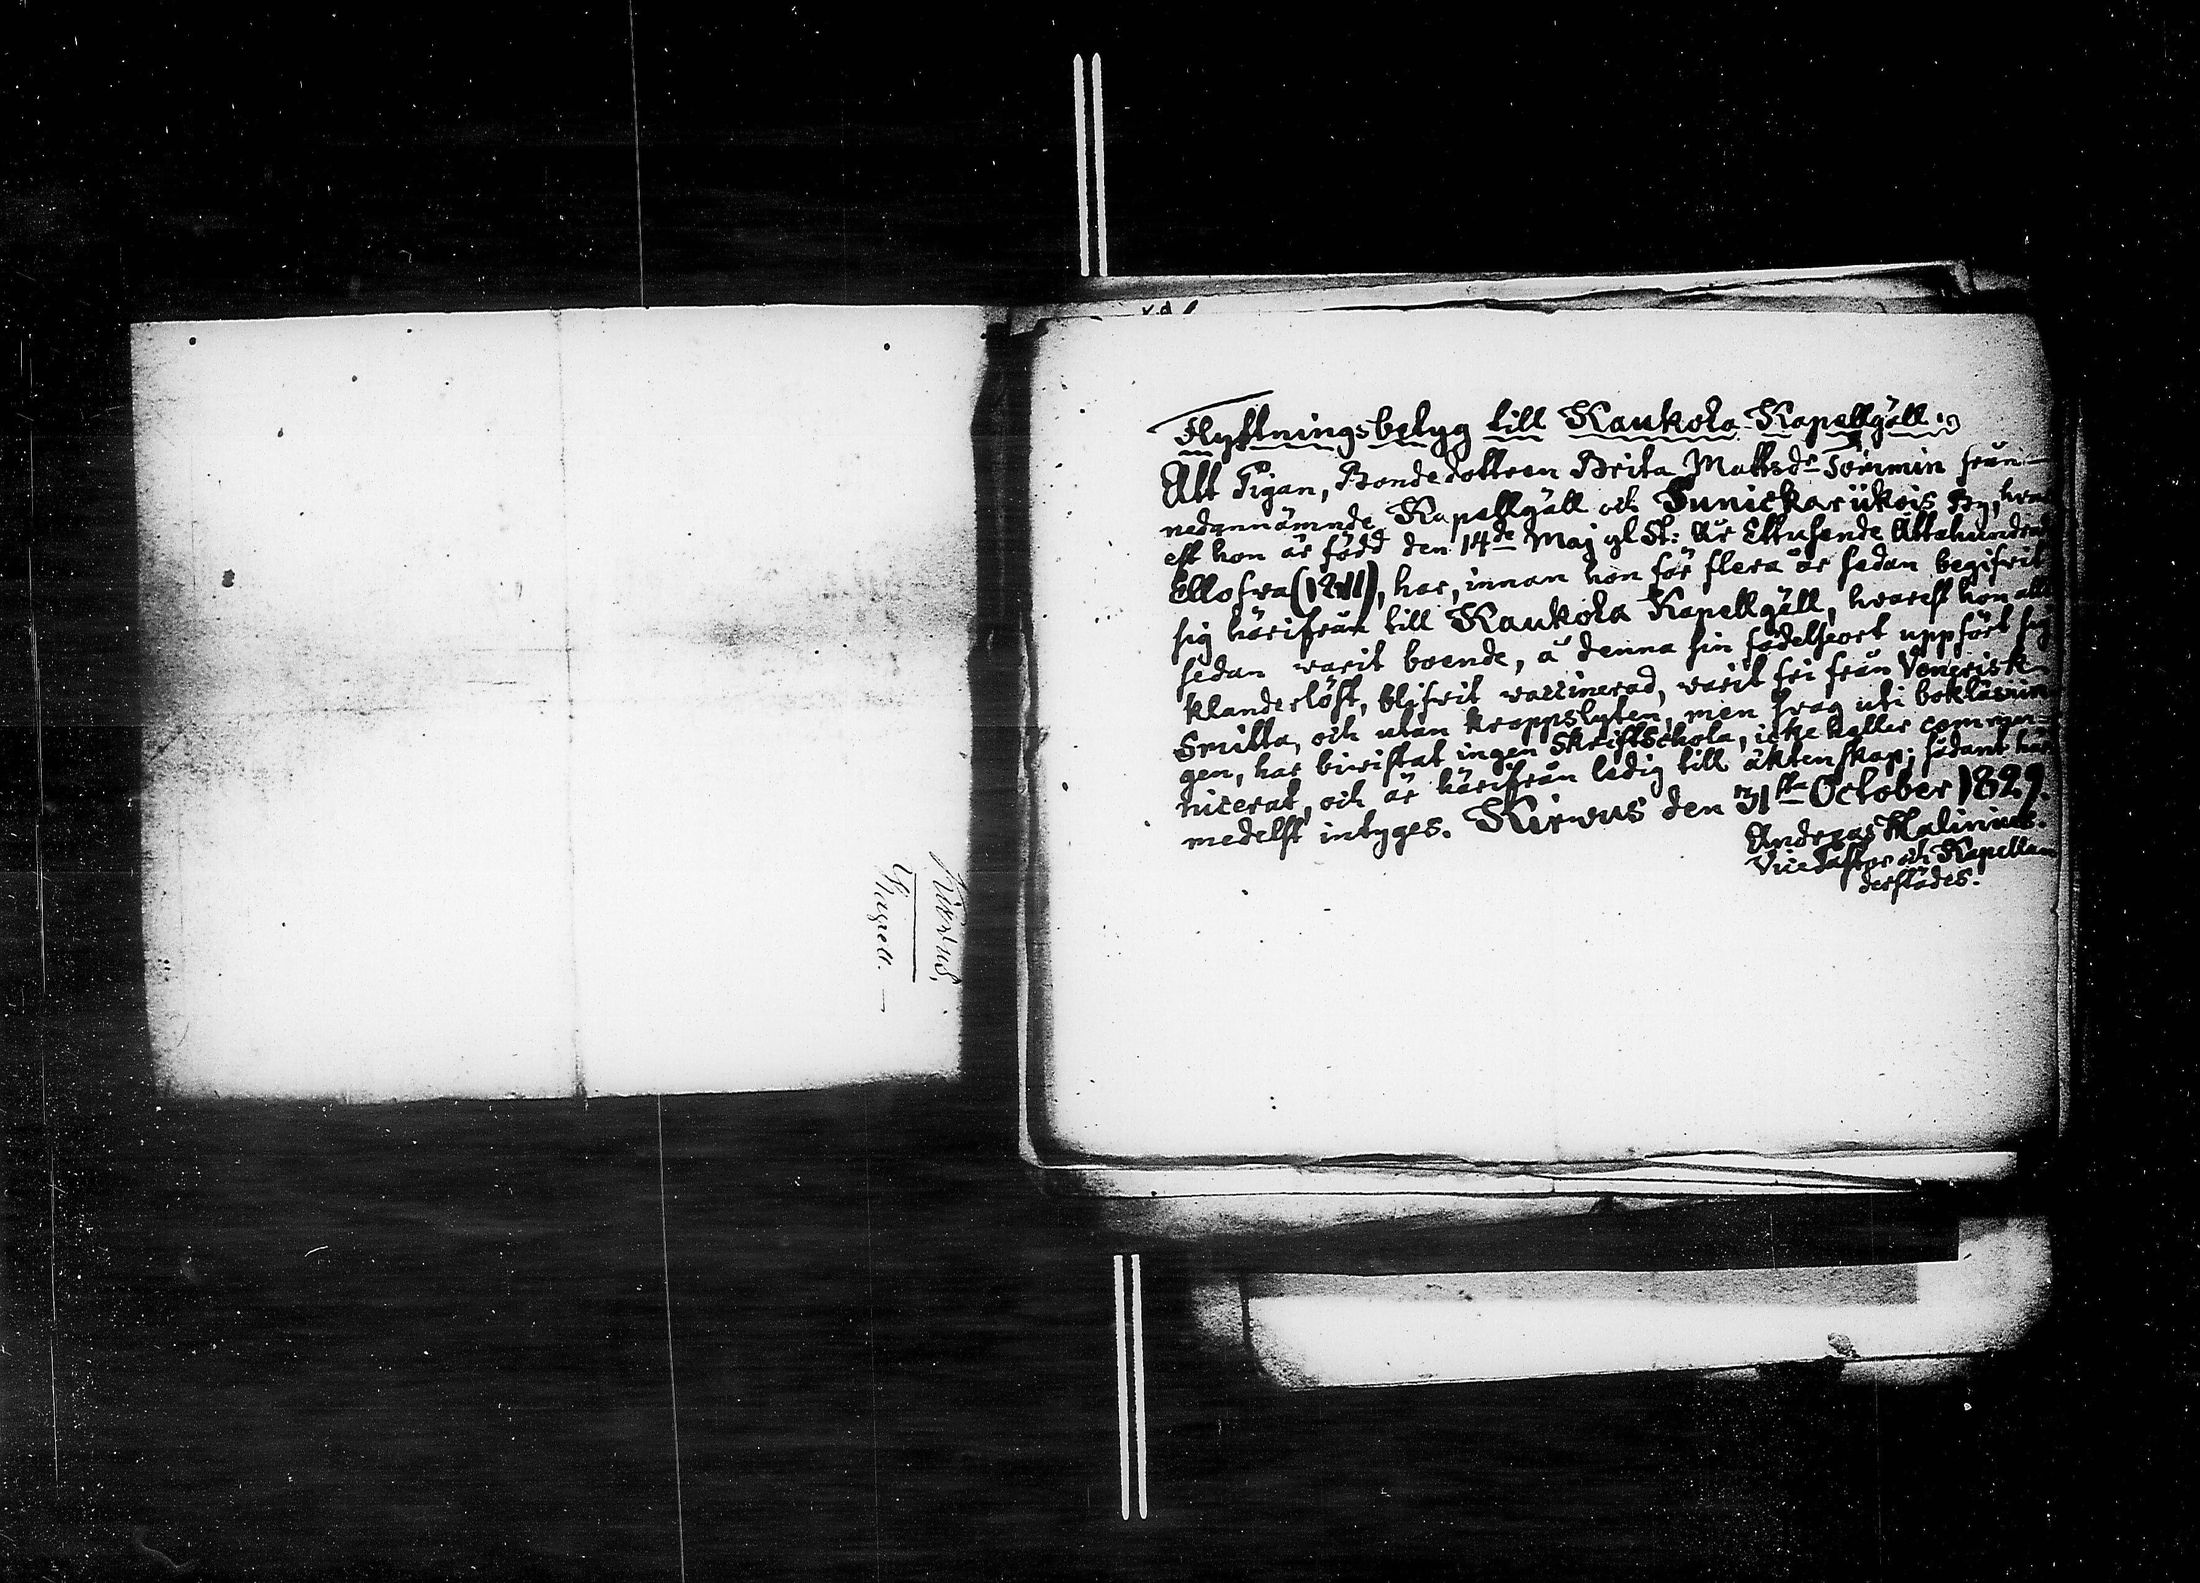 Kirvus,
Flyttningsbetyg till Kaukola Kapellgäll.
Att Pigan, Bondedottren Brita Mattsdr Tommin från
nedannämnde Kapellgäll och Tunickarükois By, hvar
est hon är född den 14de Maj gl. St: År Ettusende Åttahundrad
Ellofva (1811), har, innan hon för flera år sedan begifvit
sig härifrån till Kaukola Kapellgäll, hvarest hon allt
sedan varit boende, å denna sin födelseort uppfört sig
klanderlöst, blifvit vaccinerad, varit fri från Venerisk
Smitta, och utan kroppslyten, men svag uti bokläsnin
gen, har bivistat ingen Skriftschola, icke heller commu=
nicerat, och är härifrån ledig till äktenskap; sådant här
medelst intyges. Kirvus den 31ste October 1829.
Andreas Malinius.
Vice Pastor och Kapellan
derstädes.